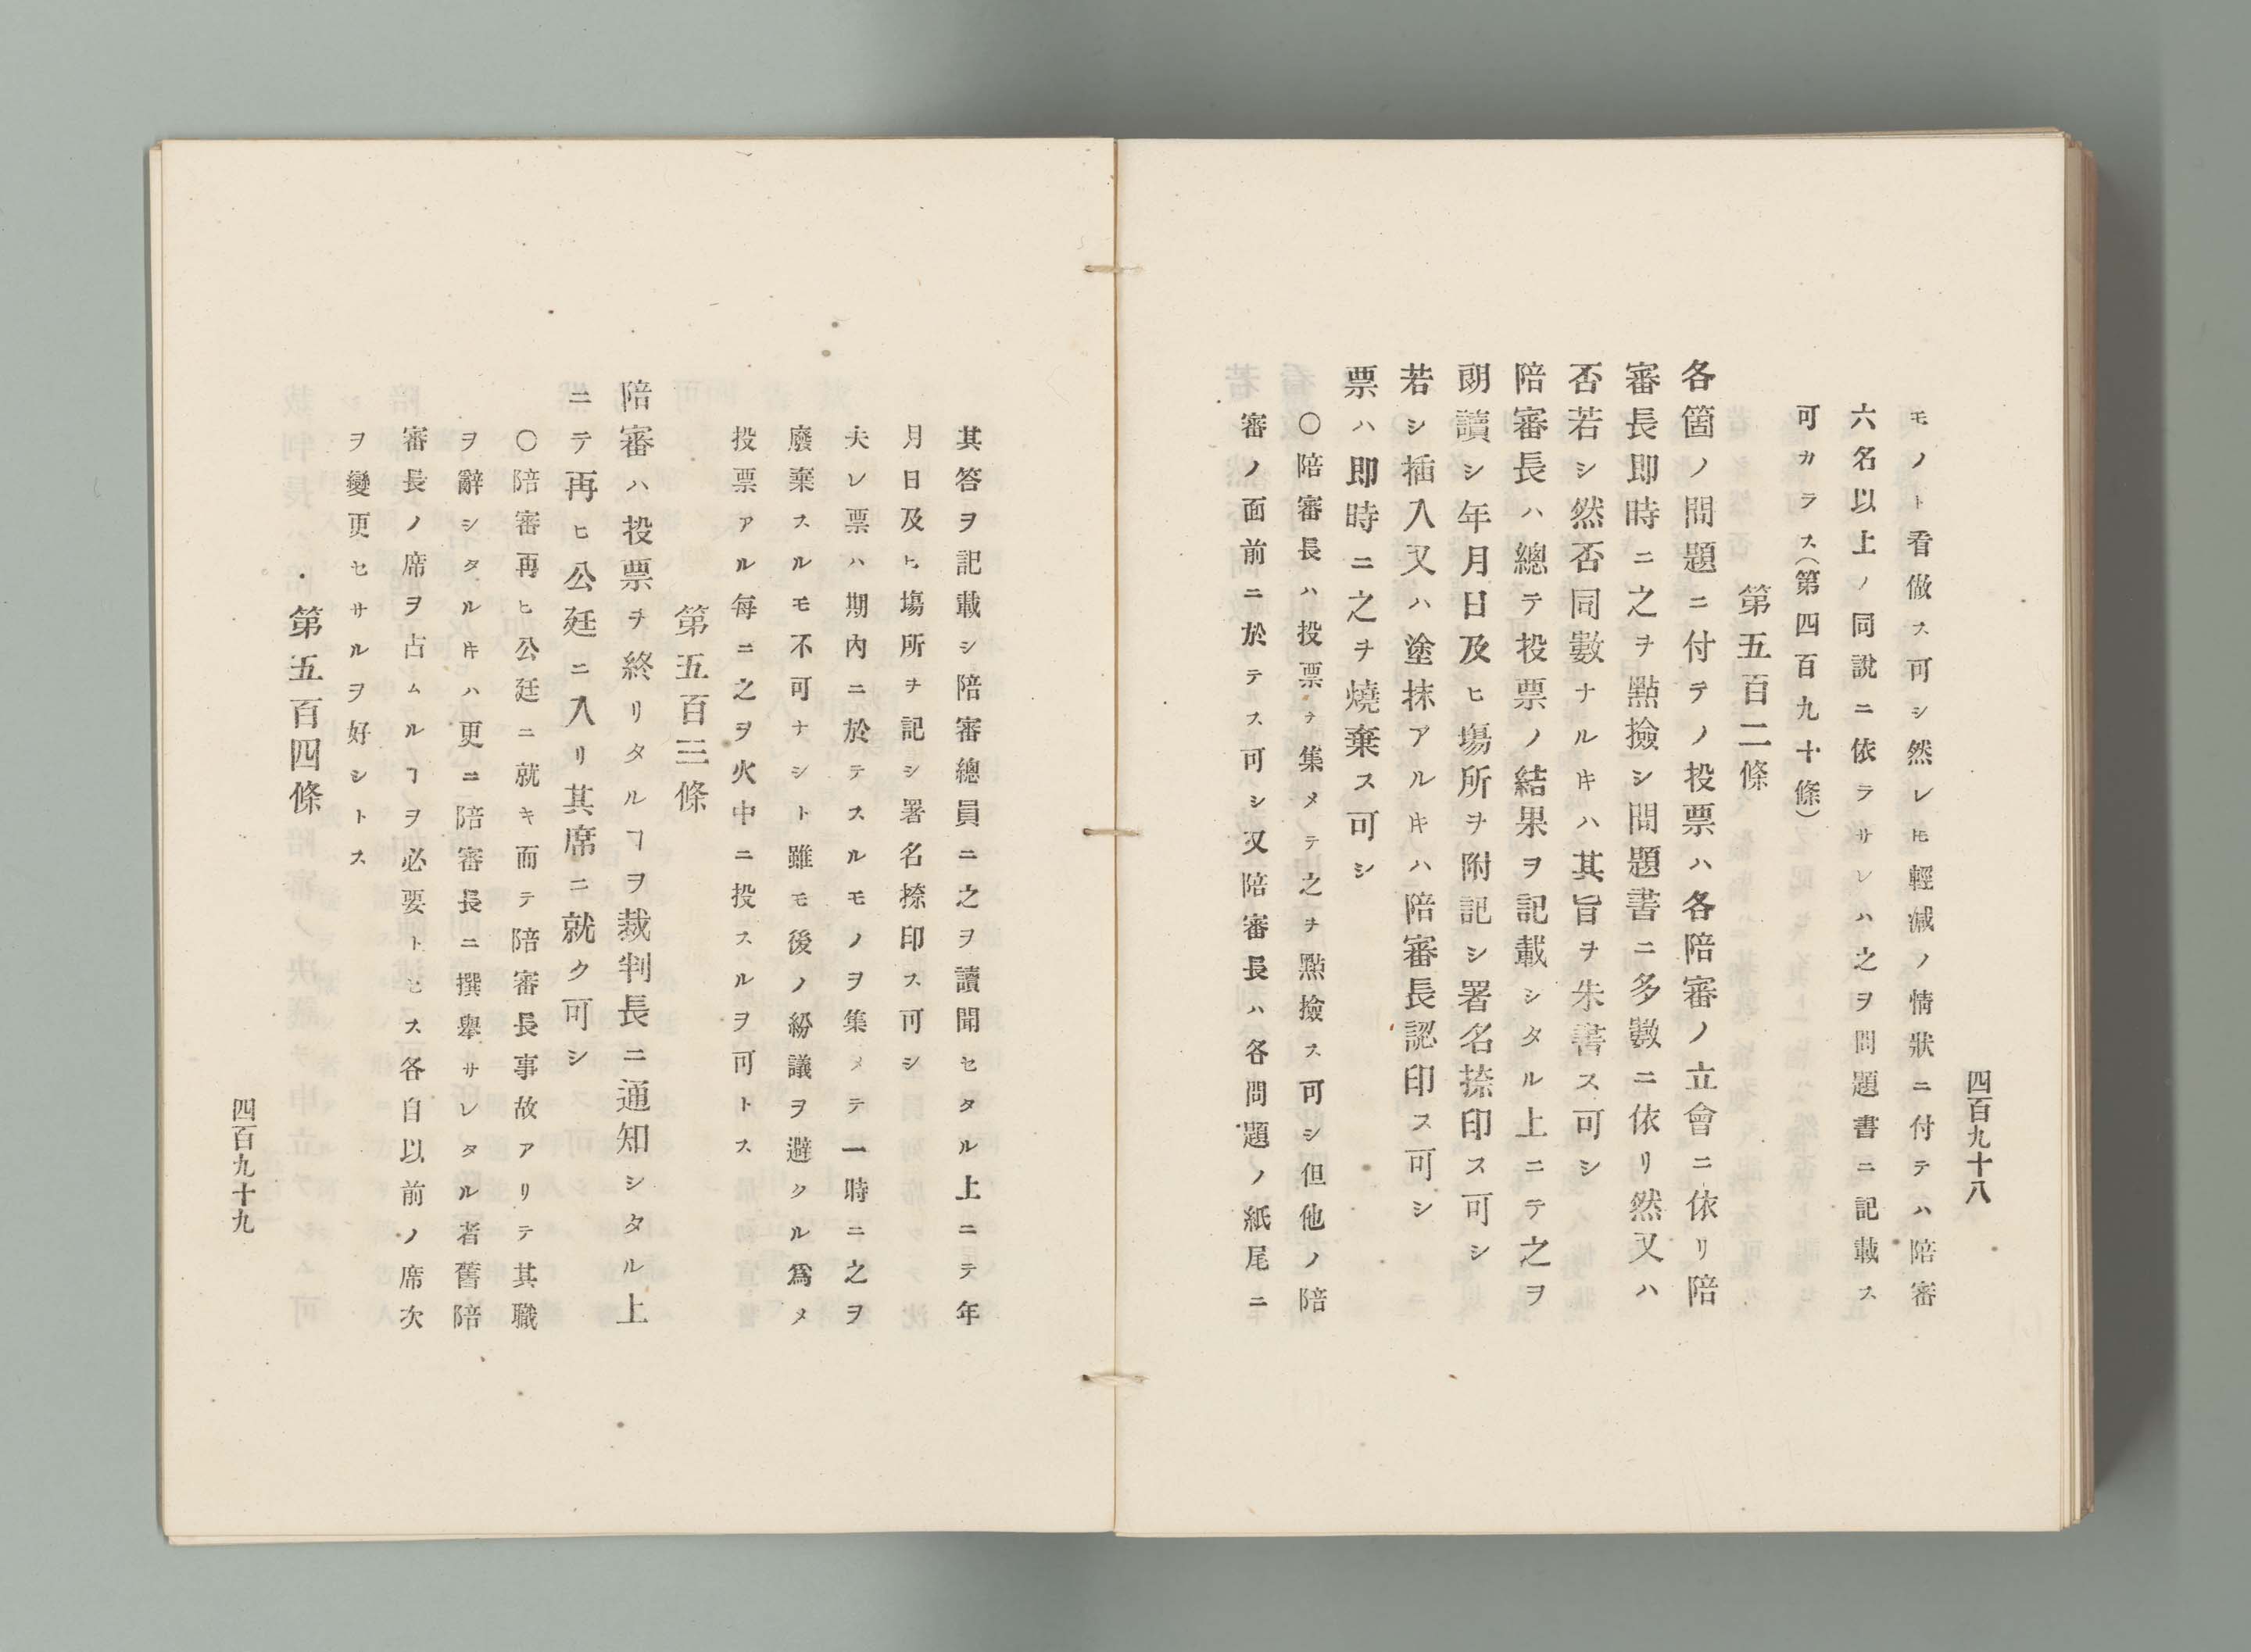 四百九十八
モノト看做ス可シ然レ𪜈輕减ノ情狀ニ付テハ陪審
六名以上ノ同說ニ依ラサレハ之ヲ問題書ニ記載ス
可カラス（第四百九十條）
第五百二條
各箇ノ問題ニ付テノ投票ハ各陪審ノ立會ニ依リ陪
審長即時ニ之ヲ點撿シ問題書ニ多數ニ依リ然又ハ
否若シ然否同數ナルキハ其旨ヲ朱書ス可シ
陪審長ハ總テ投票ノ結果ヲ記載シタル上ニテ之ヲ
朗讀シ年月日及ヒ塲所ヲ附記シ署名捺印ス可シ
若シ插入又ハ塗抹アルキハ陪審長認印ス可シ
票ハ即時ニ之ヲ燒棄ス可シ
〇陪審長ハ投票ヲ集メテ之ヲ點撿ス可シ但他ノ陪
審ノ面前ニ於テス可シ又陪審長ハ各問題ノ紙尾ニ
其答ヲ記載シ陪審總員ニ之ヲ讀聞セタル上ニテ年
月日及ヒ塲所ヲ記シ署名捺印ス可シ
夫レ票ハ期內ニ於テスルモノヲ集メテ一時ニ之ヲ
廢棄スルモ不可ナシト雖モ後ノ紛議ヲ避クル爲メ
投票アル每ニ之ヲ火中ニ投スルヲ可トス
第五百三條
陪審ハ投票ヲ終リタルヿヲ裁判長ニ通知シタル上
ニテ再ヒ公廷ニ入リ其席ニ就ク可シ
〇陪審再ヒ公廷ニ就キ而テ陪審長事故アリテ其職
ヲ辭シタルキハ更ニ陪審長ニ撰擧サレタル者舊陪
審長ノ席ヲ占ムルヿヲ必要トセス各自以前ノ席次
ヲ變更セサルヲ好シトス
第五百四條
四百九十九